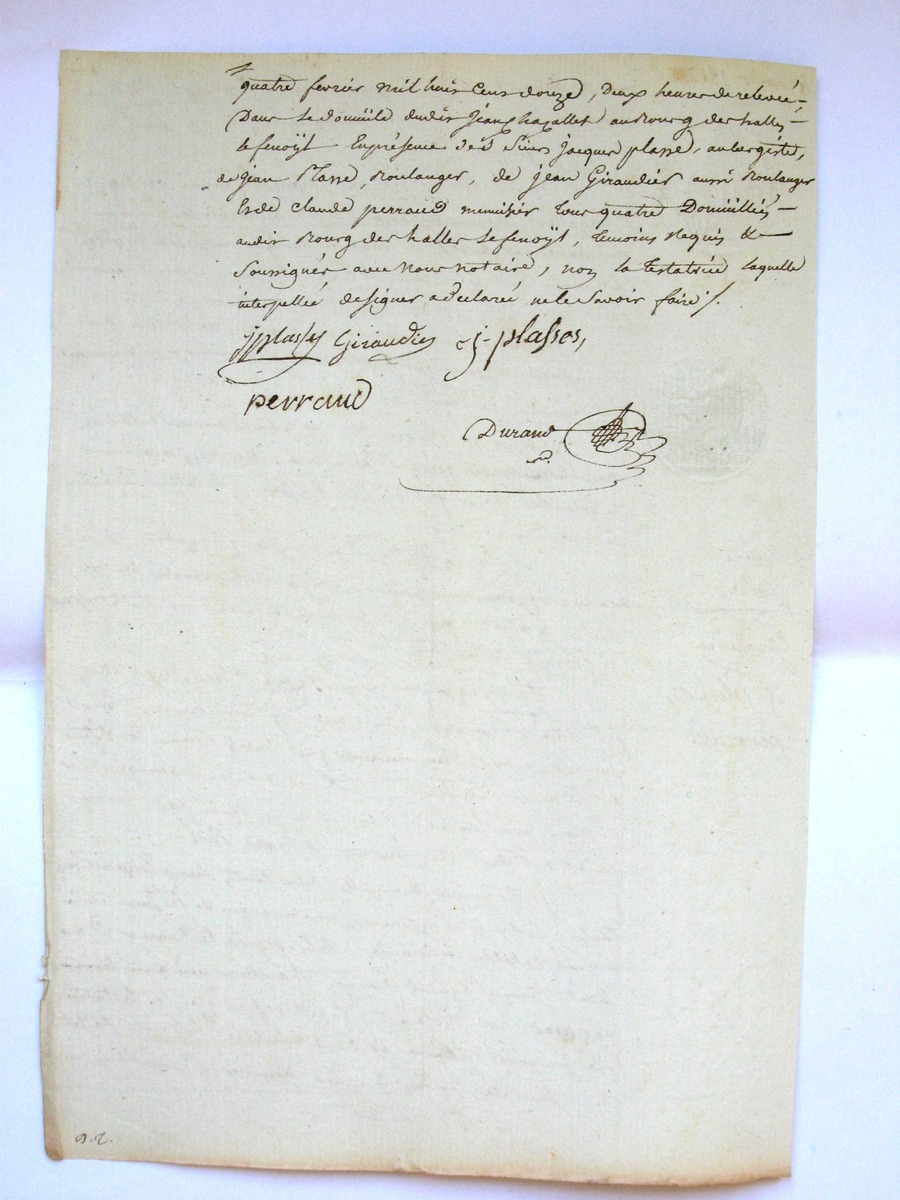 quatre fevrier mil huit Cent douze, Deux heures de relevée,
Dans le domicile dudit Jean Chapallet au Bourg des halles
le fenoÿl En présence des Sieurs Jacques plasse, aubergiste,
de Jean Plasse, Boulanger, de Jean Giraudier aussi Boulanger
Et de Claude perraud menuisier tous quatre Domiciliés
audit Bourg des halles le fenoÿl, temoins Requis &
Soussignés avec Nous notaire, non la Testatrice laquelle
interpellée de signer a declarée ne le Savoir faire ./.
Giraudier j. plasses,
perraud
Durand
n.re